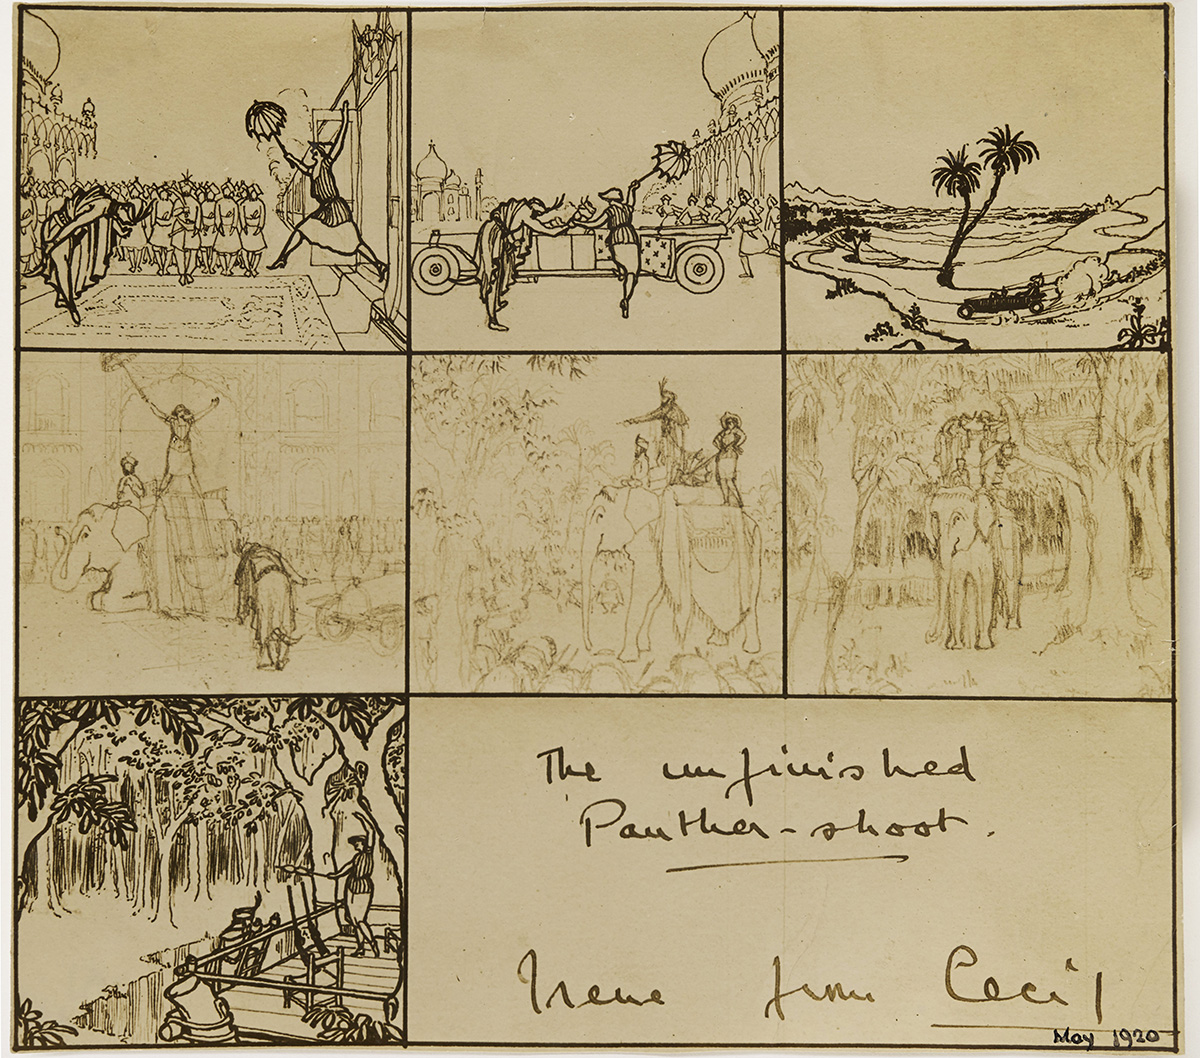 The unfinished
Panther-shoot.
Irene from Cecil
May 1920